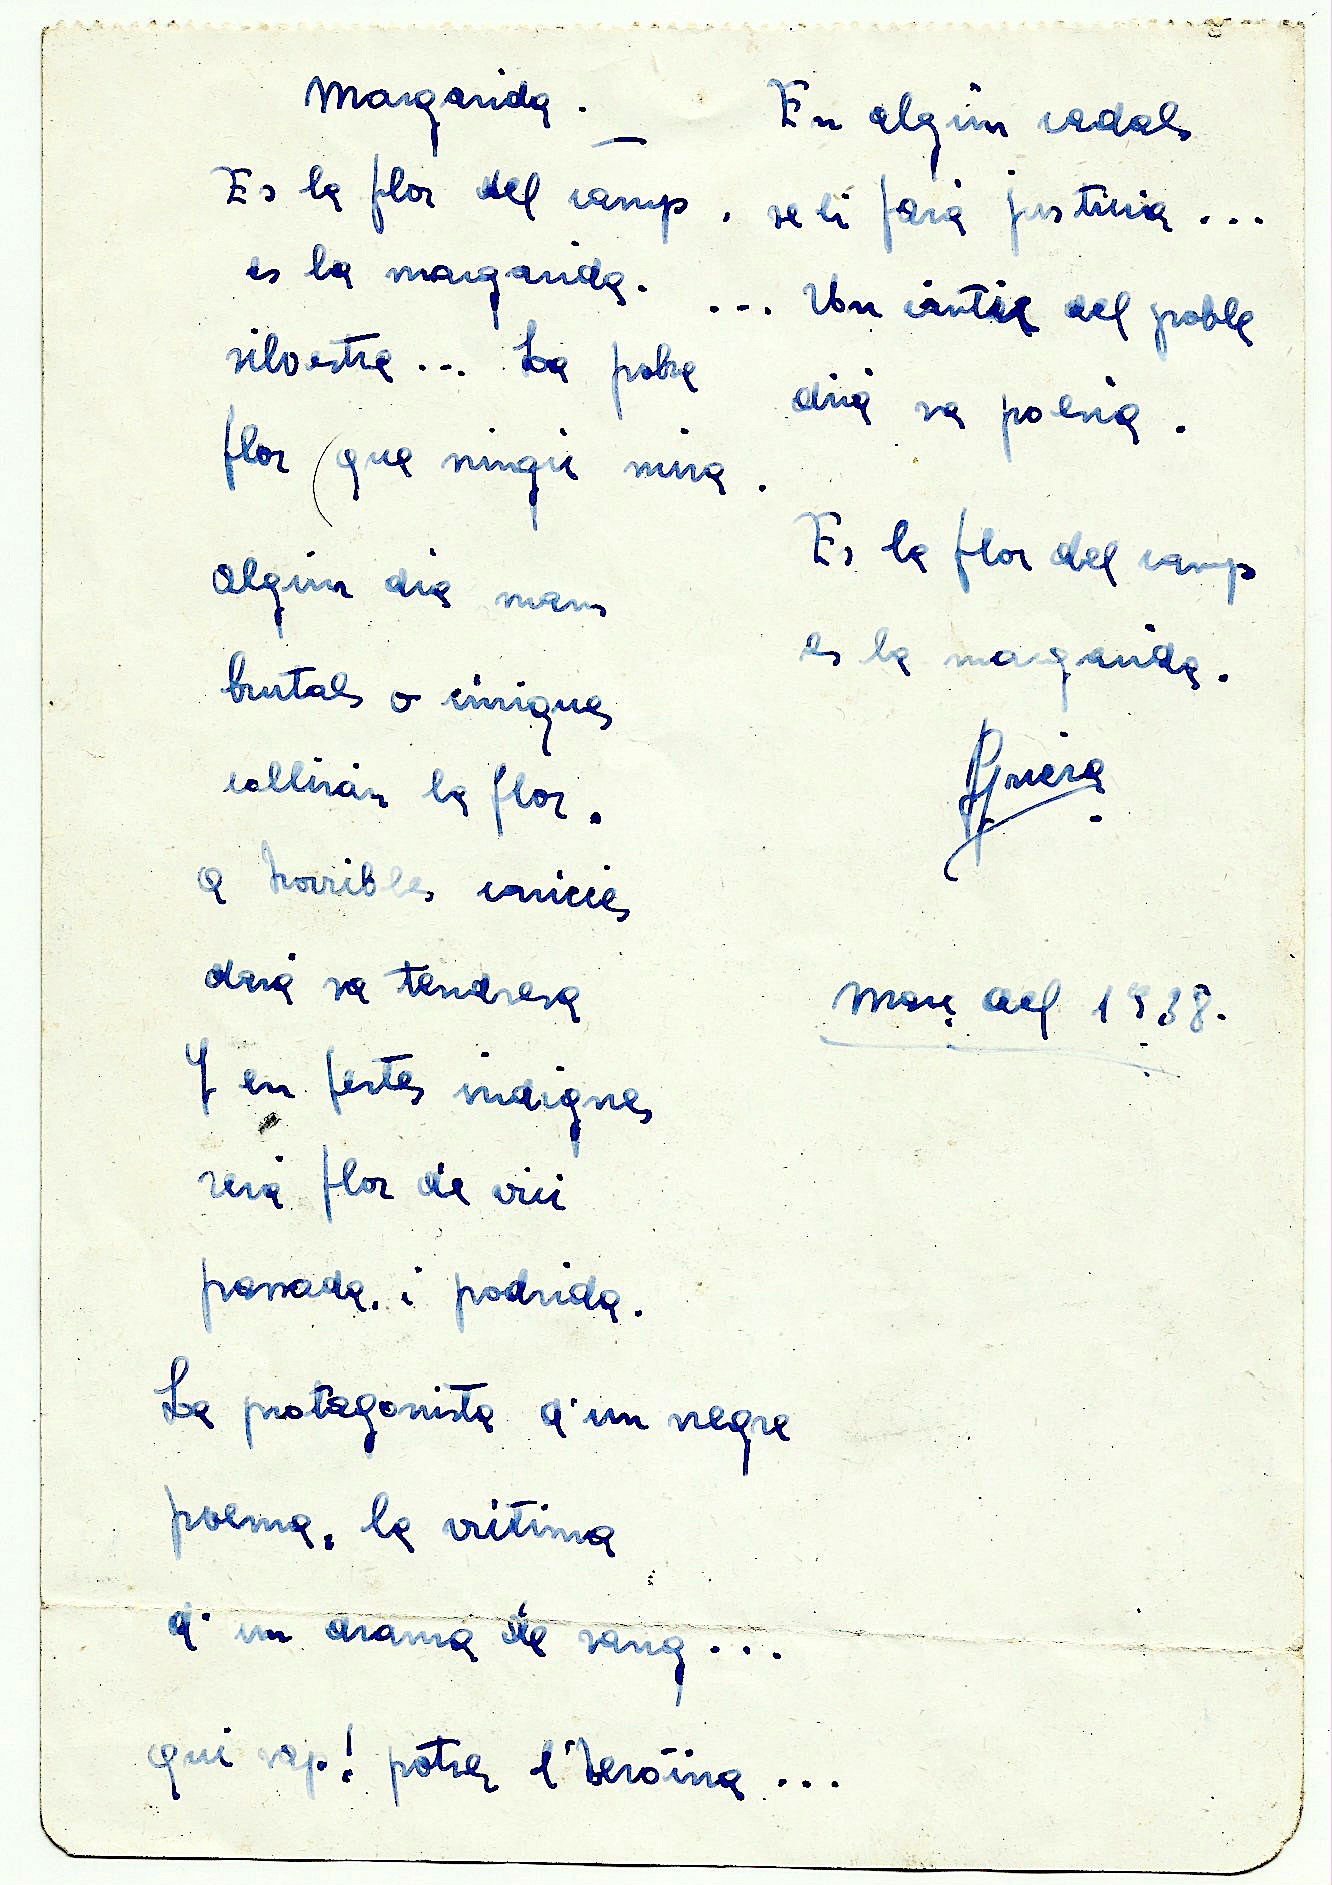 Margarida.
Es la flor del camp,
es la margarida.
silvestre... La pobre
flor (que ningú mira.
algún dia mans
brutals o cíniques
cullirán la flor.
a horribles caricies
dará sa tendresa
Y en festes indignes
será flor de vici
passada, i podrida.
La protagonista d'un negre
poema, la victima
d'un drama de sang...
qui sap! potser l'heroina...
En algún cadals
se li fará justicia...
... Un cántic del poble
dirá sa poesia.
Es la flor del camp
es la margarida.
Març del 1938.